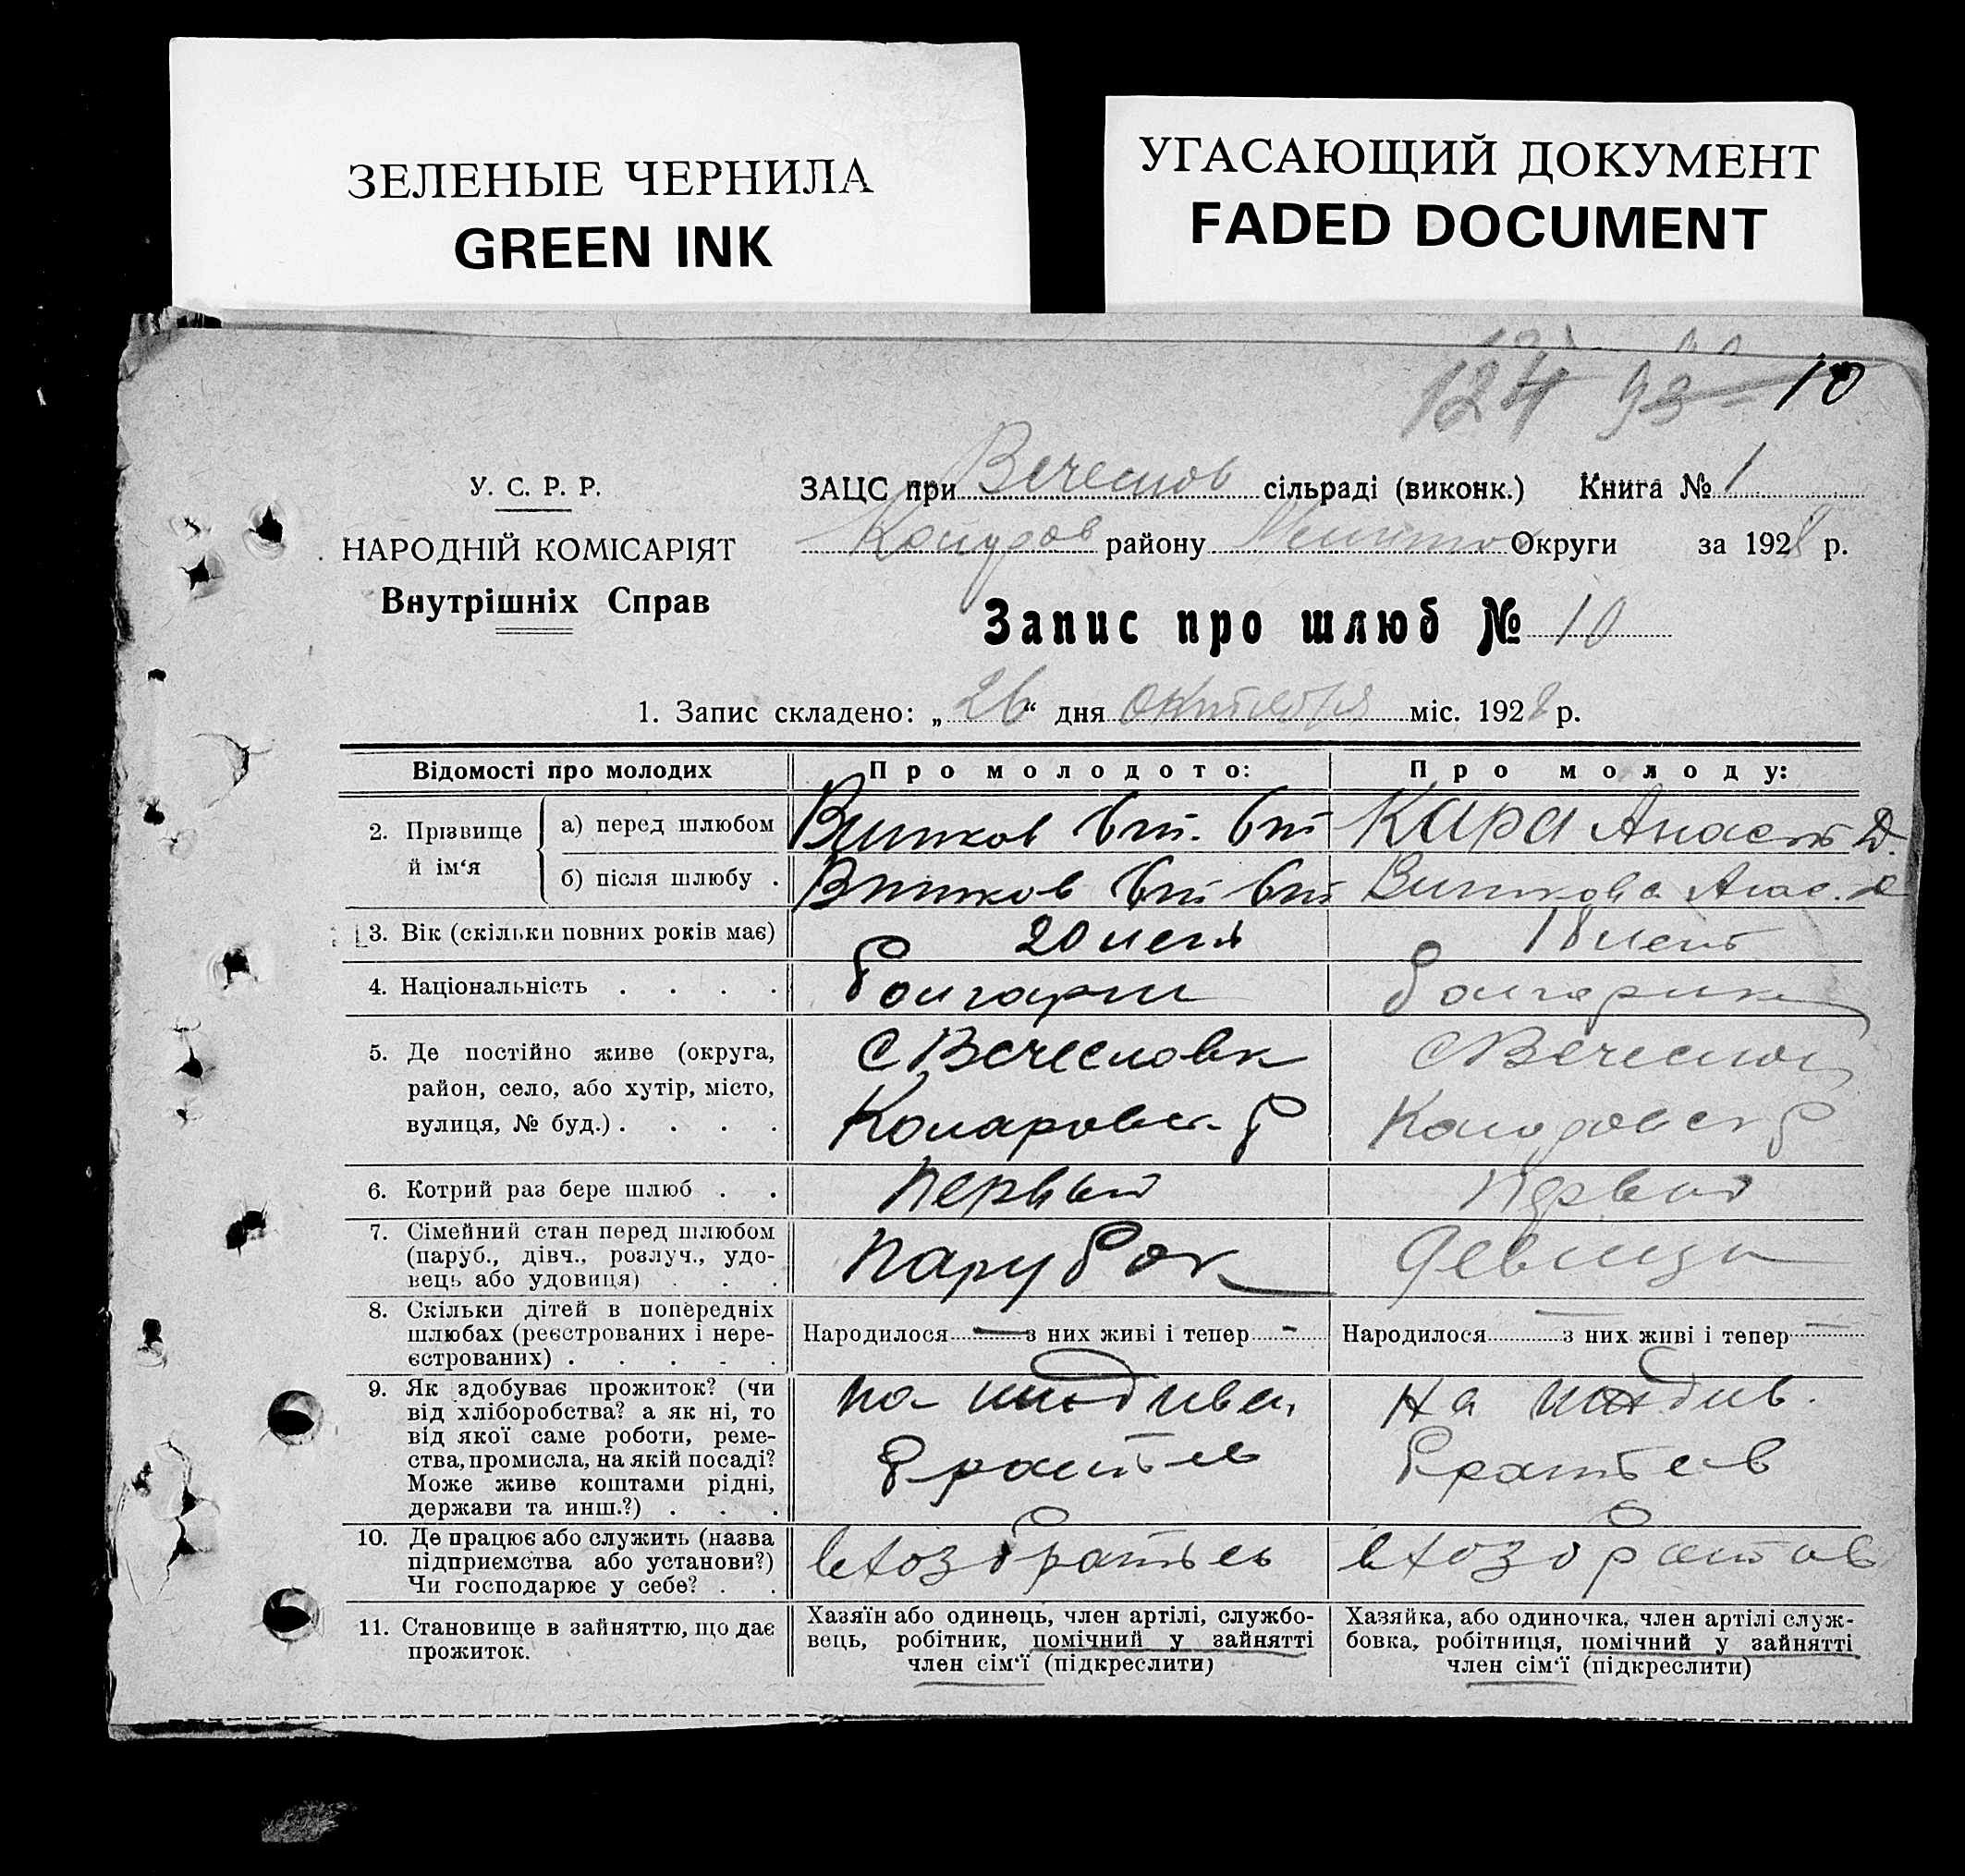 ЗЕЛЕНЫЕ ЧЕРНИЛА
GREEN INK
УГАСАЮЩИЙ ДОКУМЕНТ
FADED DOCUMENT
124 93 10
У. С. Р. Р.
НАРОДНІЙ КОМІСАРІЯТ
Внутрішніх Справ
ЗАЦС при Вечеслов сільраді (виконк.) Книга № 1
району Округи за 1928 р.
Запис про шлюб № 10
1. Запис складено: „26“ дня октября міс. 1928 р.
Відомості про молодих
Про молодого:
Про молоду:
2. Прізвище й ім‘я
а) перед шлюбом
Кара Анаст Д.
б) після шлюбу .
3. Вік (скільки повних років має)
20 лет
18 лет
4. Національність . . . .
болгарин
болгарин
5. Де постійно живе (округа,
район, село, або хутір, місто,
вулиця, № буд.) . . . .
с Вечесловк
с Вечеслов
6. Котрий раз бере шлюб . .
первый
первый
7. Сімейний стан перед шлюбом
(паруб., дівч., розлуч., удо-
вець або удовиця) . . .
парубок
девица
8. Скільки дітей в попередніх
шлюбах (реєстрованих і нере-
єстрованих) . . . . .
Народилося — з них живі і тепер -
Народилося — з них живі і тепер —
9. Як здобуває прожиток? (чи
від хліборобства? а як ні, то
від якої саме роботи, реме-
ства, промисла, на якій посаді?
Може живе коштами рідні,
держави та инш.?) . . .
на иждиве.
братьев
На иждив.
братьев
10. Де працює або служить (назва
підприємства або установи?)
Чи господарює у себе? . .
в хоз братьев
в хоз братов
11. Становище в зайняттю, що дає
прожиток.
Хазяїн або одинець, член артілі, службо-
вець, робітник, помічний у зайнятті
член сім‘ї (підкреслити)
Хазяйка, або одиночка, член артілі служ-
бовка, робітниця, помічний у зайнятті
член сім‘ї (підкреслити)